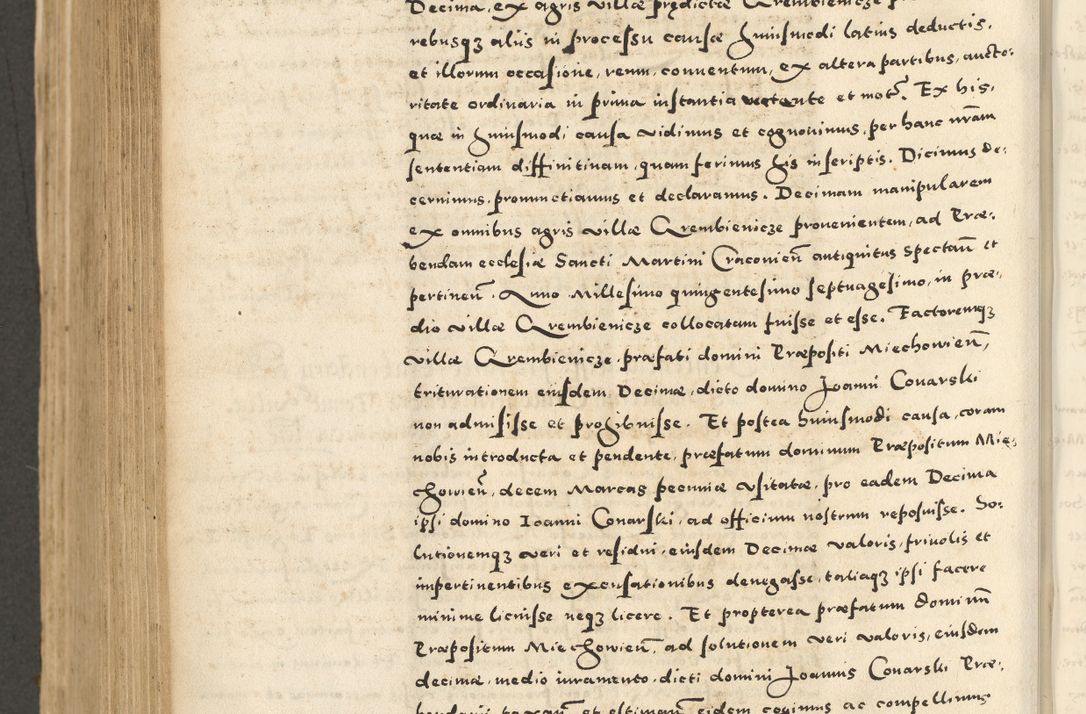 Decima, ex agris villæ prędictæ Crembienicze
rebusqȝ aliis in processu causæ huiusmodi latius deductis,
et illorum occasione, renun, conuentum, ex altera partibus, aucto-
ritate ordinaria in prima instantia vertente et mot. Ex his,
quæ in huiusmodi causa vidimus et cognouimus, per hanc nr̃am
sententiam diffinitiuam, quam ferimus his in scriptis. Dicimus de-
cernimus, pronunctiamus et declaramus. Decimam manipularem
ex omnibus agris villæ Crembienicze prouenientem, ad Præ-
bendam ecclesiæ Sancti Martini Cracouien̄ antiquitus spectan̄ et
pertinen̄. Anno Millesimo quingentesimo septuagesimo, in præ-
dio villæ Crembienicze collocatam fuisse et esse. Factoremqȝ
villæ Crembienicze, præfati domini Præpositi Miechowien̄,
triturationem eiusdem Decimæ, dicto domino Joanni Conarski
non admisisse et prohibuisse. Et postea huiusmodi causa, coram
nobis introducta et pendente, præfatum dominum Præpositum Mie-
chowien̄, decem Marcas pecuniæ vsitatæ, pro eadem Decima
ipsi domino Ioanni Conarski, ad officium nostrum reposuisse. So-
lutionemqȝ veri et residui, eiusdem Decimæ valoris, friuolis et
impertinentibus excusationibus denegasse, taliaqȝ ipsi facere
minime licuisse neqȝ licere. Et propterea præfatum dominū
Præpositum Miechowien̄, ad solutionem veri valoris, eiusdem
decimæ, medio iuramento, dicti domini Joannis Conarski Præ-
bendarii taxan̄ et estiman̄ eidem cogimus ac compellimus